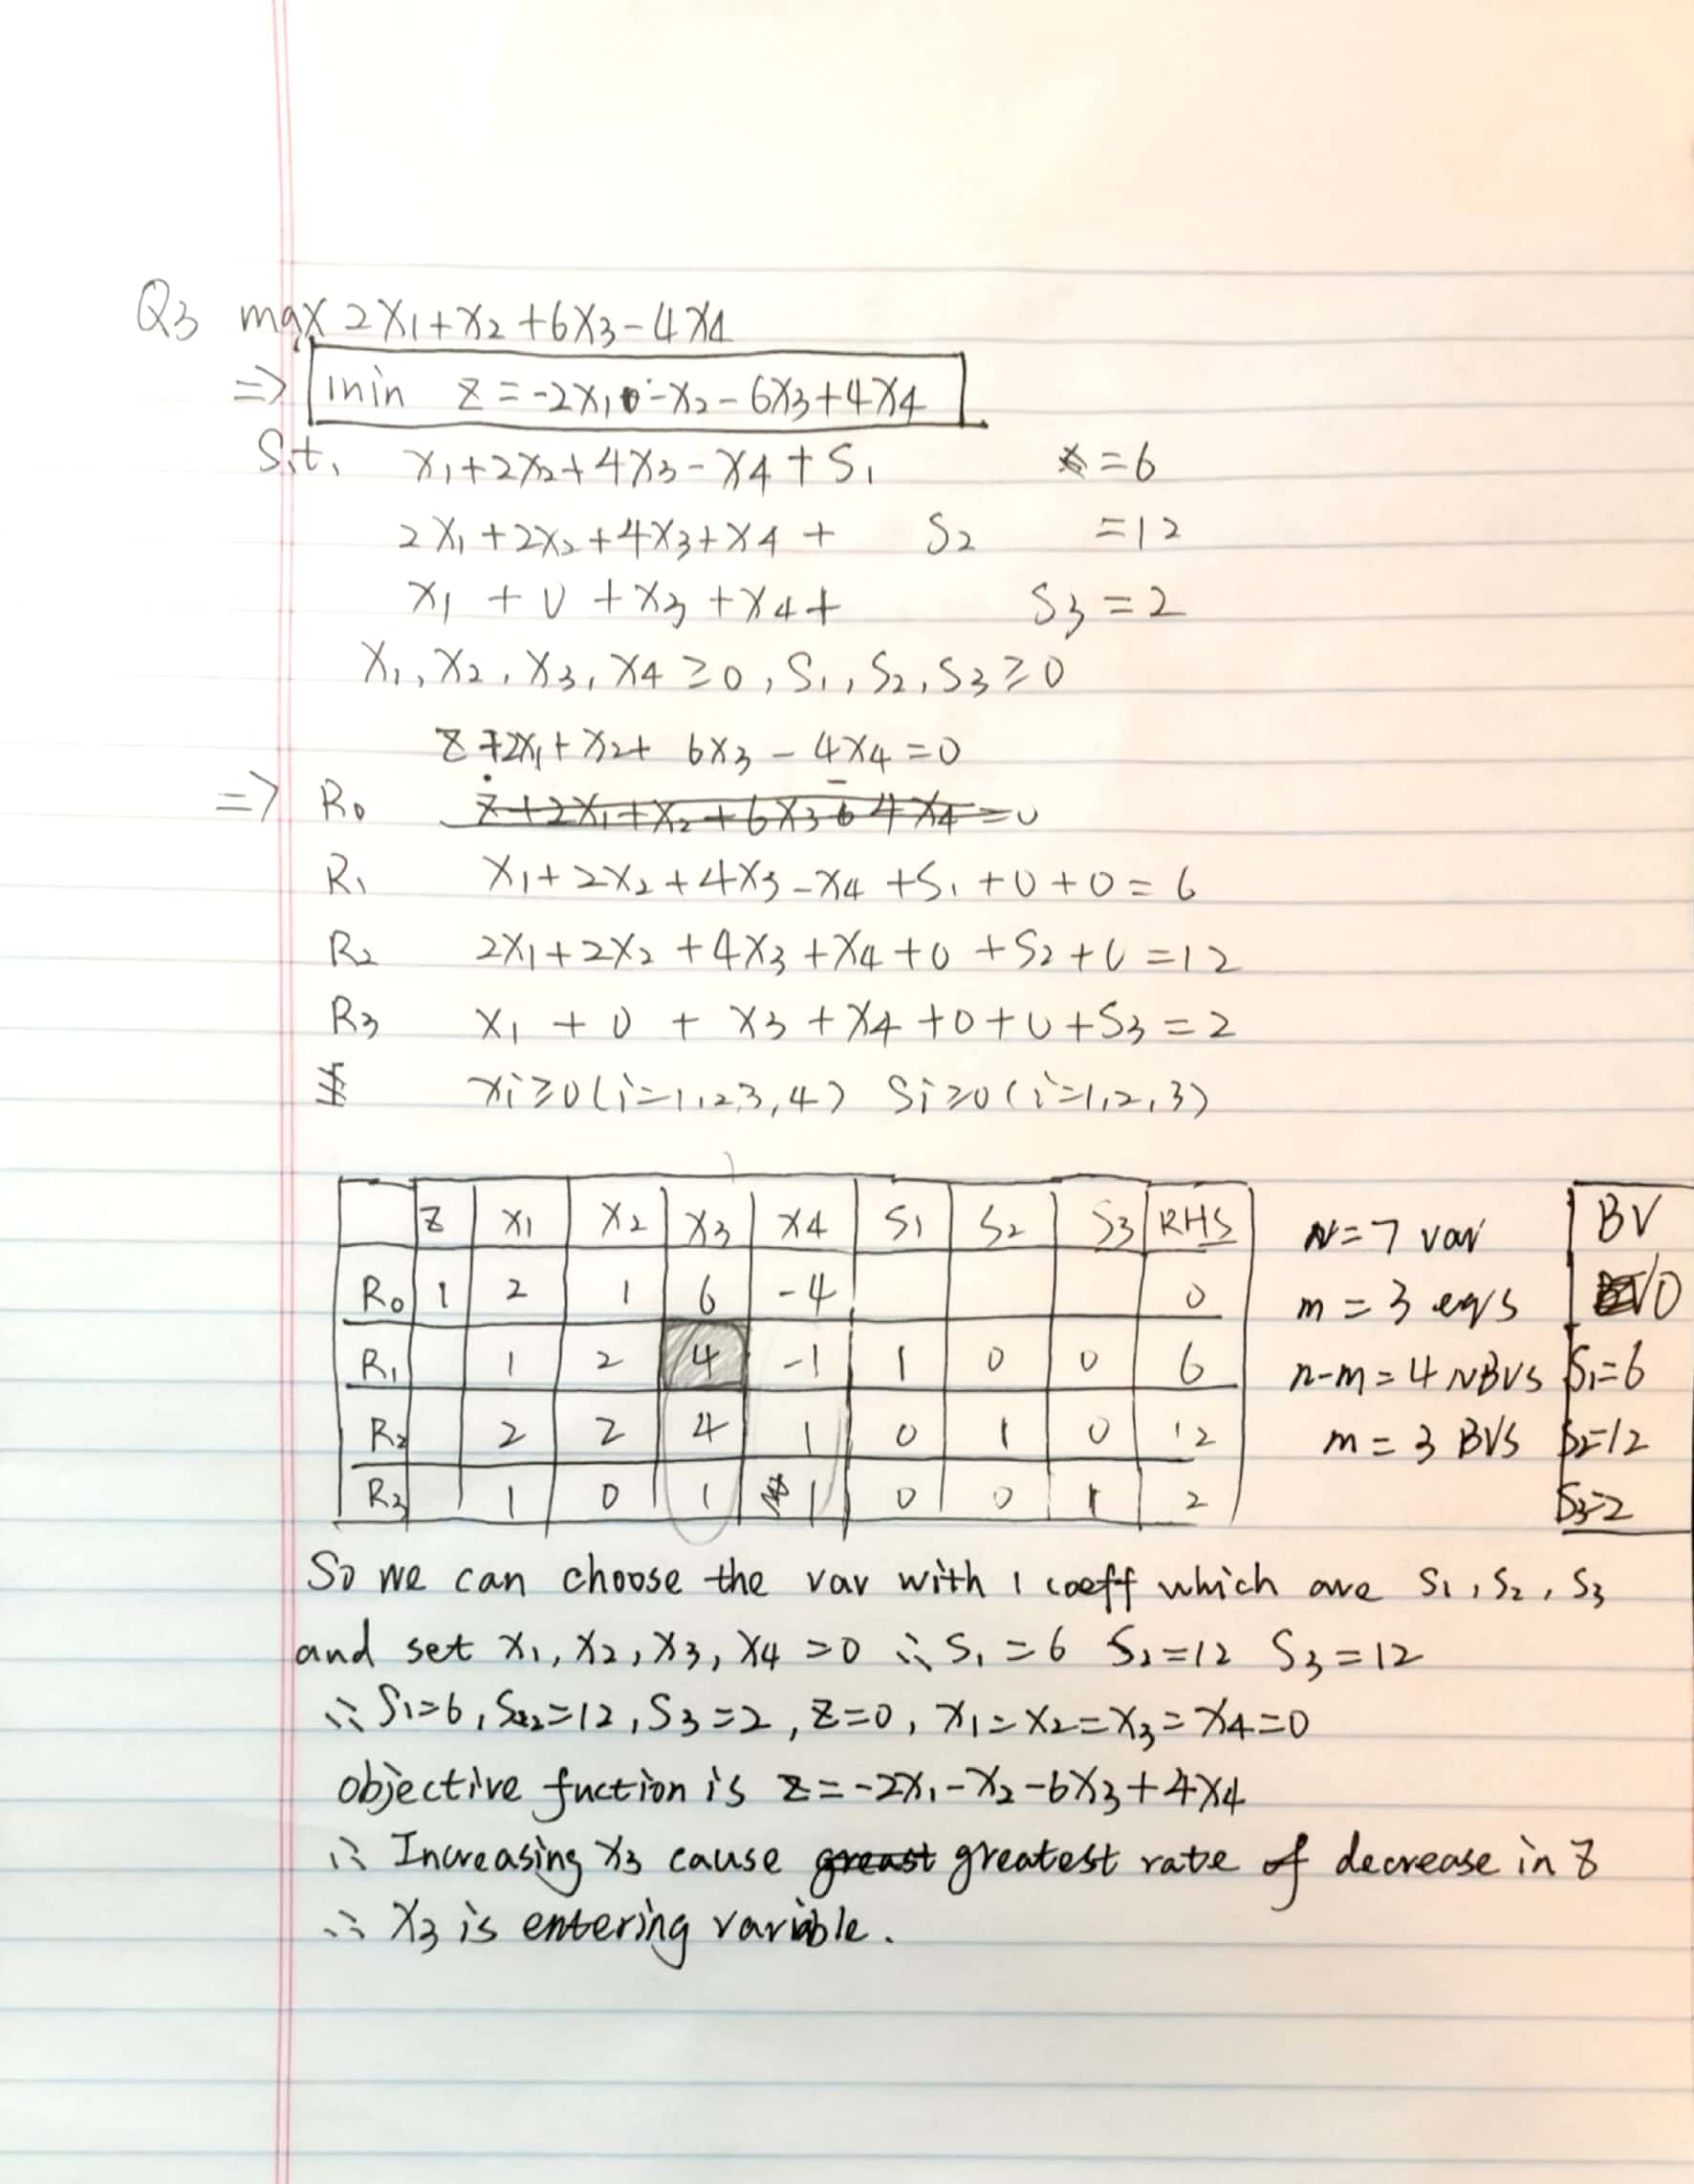 Q3 max 2X1+X2+6X3-4X4
=> min z=-2X1-X2-6X3+4X4
S.t. X1+2X2+4X3-X4+S1 =6
2X1+2X2+4X3+X4+ S2 =12
X1+0+X3+X4+ S3=2
X1,X2,X3,X4≥0,S1,S2,S3≥0
Z+2X1+X2+6X3-4X4=0
=> R0 Z+2X1+X2+6X3-4X4=0
R1 X1+2X2+4X3-X4+S1+0+0=6
R2 2X1+2X2+4X3+X4+0+S2+0=12
R3 X1+0+X3+X4+0+0+S3=2
xi≥0(i=1,2,3,4) Si≥0(i=1,2,3)
Z X1 X2 X3 X4 S1 S2 S3 RHS N=7 var BV
R0 1 2 1 6 -4 0 m=3 eqs 0
R1 1 2 4 -1 1 0 0 6 n-m=4 NBVS S1=6
R2 2 2 4 1 0 1 0 12 m=3 BVS S2=12
R3 1 0 1 1 0 0 1 2 S3=2
So we can choose the var with 1 coeff which are S1,S2,S3
and set X1,X2,X3,X4=0 ∴ S1=6 S2=12 S3=12
∴ S1=6,S2=12,S3=2,Z=0,X1=X2=X3=X4=0
objective fuction is z=-2X1-X2-6X3+4X4
∴ Increasing X3 cause greast greatest rate of decrease in z
∴ X3 is entering variable.